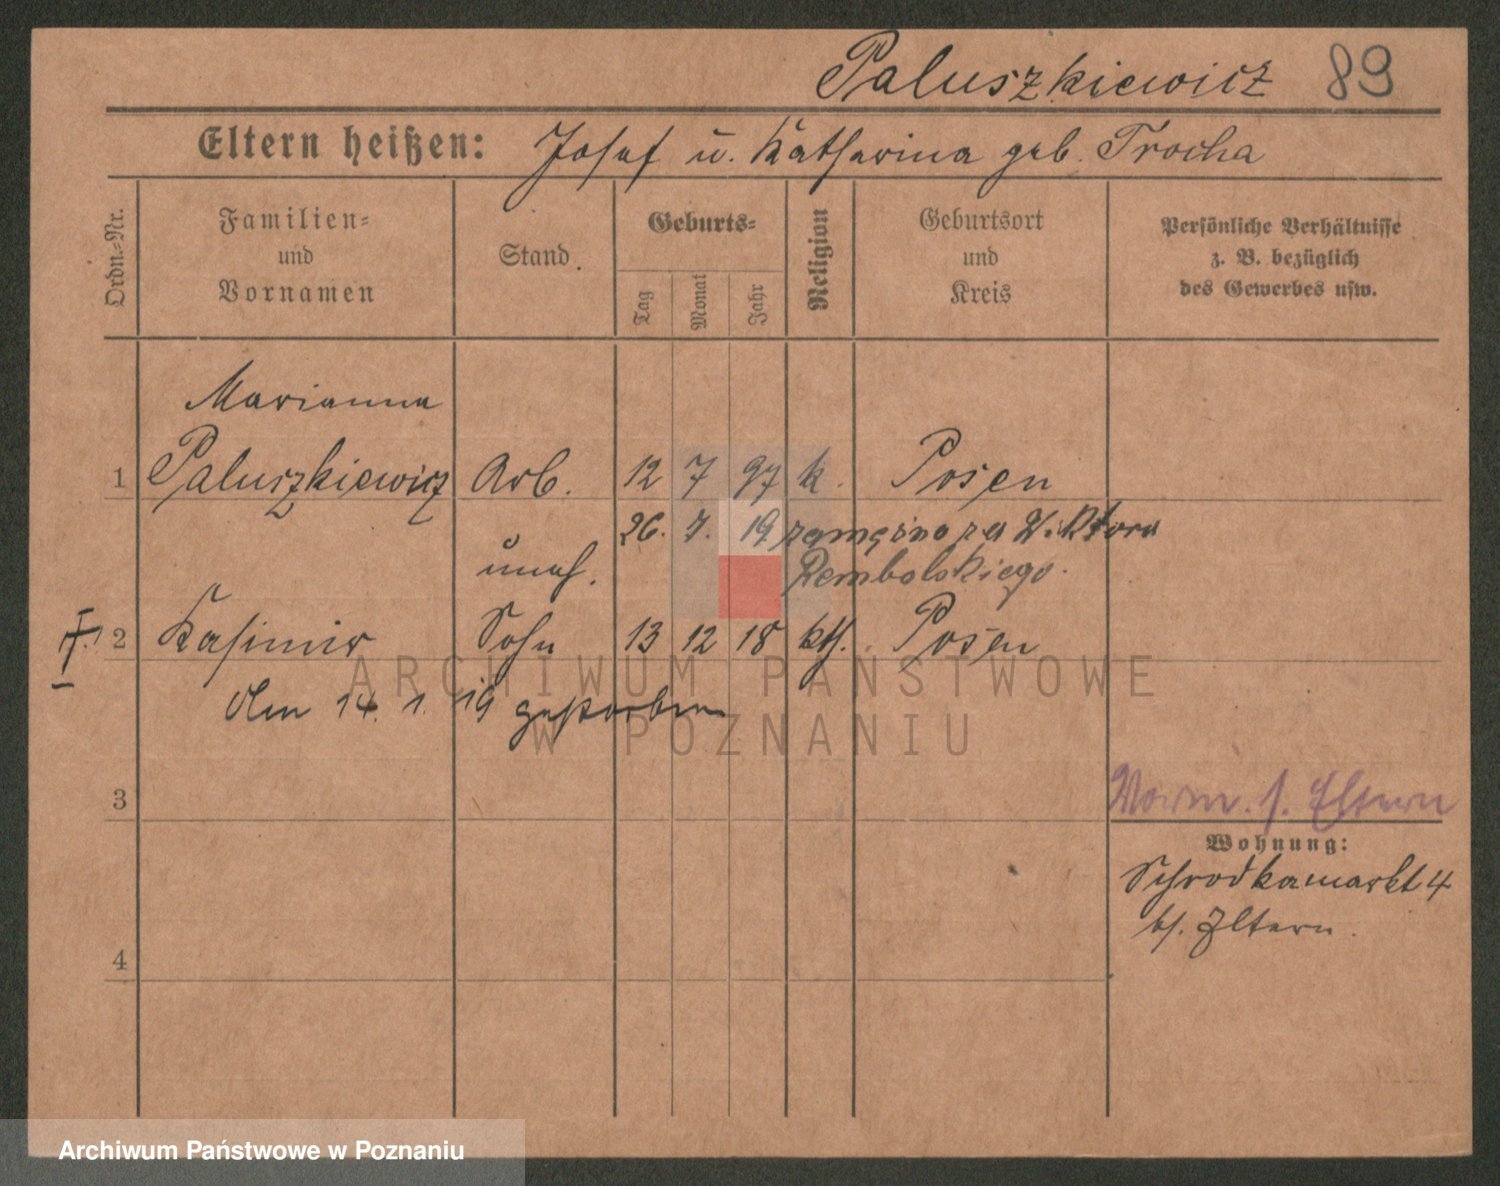 Paluszkiewicz 89
Eltern heißen: Josef u. Katharina geb. Trocha
Ordn.-Nr.
Familien- und Vornamen
Stand
Geburts-
Tag
Monat
Jahr
Religion
Geburtsort und Kreis
Persönliche Verhältnisse
z. B. bezüglich
des Gewerbes usw.
Marianna
1 Paluszkiewicz Arb. 12 7 97 k. Posen
26. 7. 19 zamężno za Wiktora
Rembolskiego.
uneh.
2 Kasimir Sohn 13 12 18 kth. Posen
den 14. 1. 19 gestorben
3
Worm. s. Eltern
Wohnung:
Schrodkamarkt 4
bs. Eltern.
4
ARCHIWUM PAŃSTWOWE
W POZNANIU
Archiwum Państwowe w Poznaniu